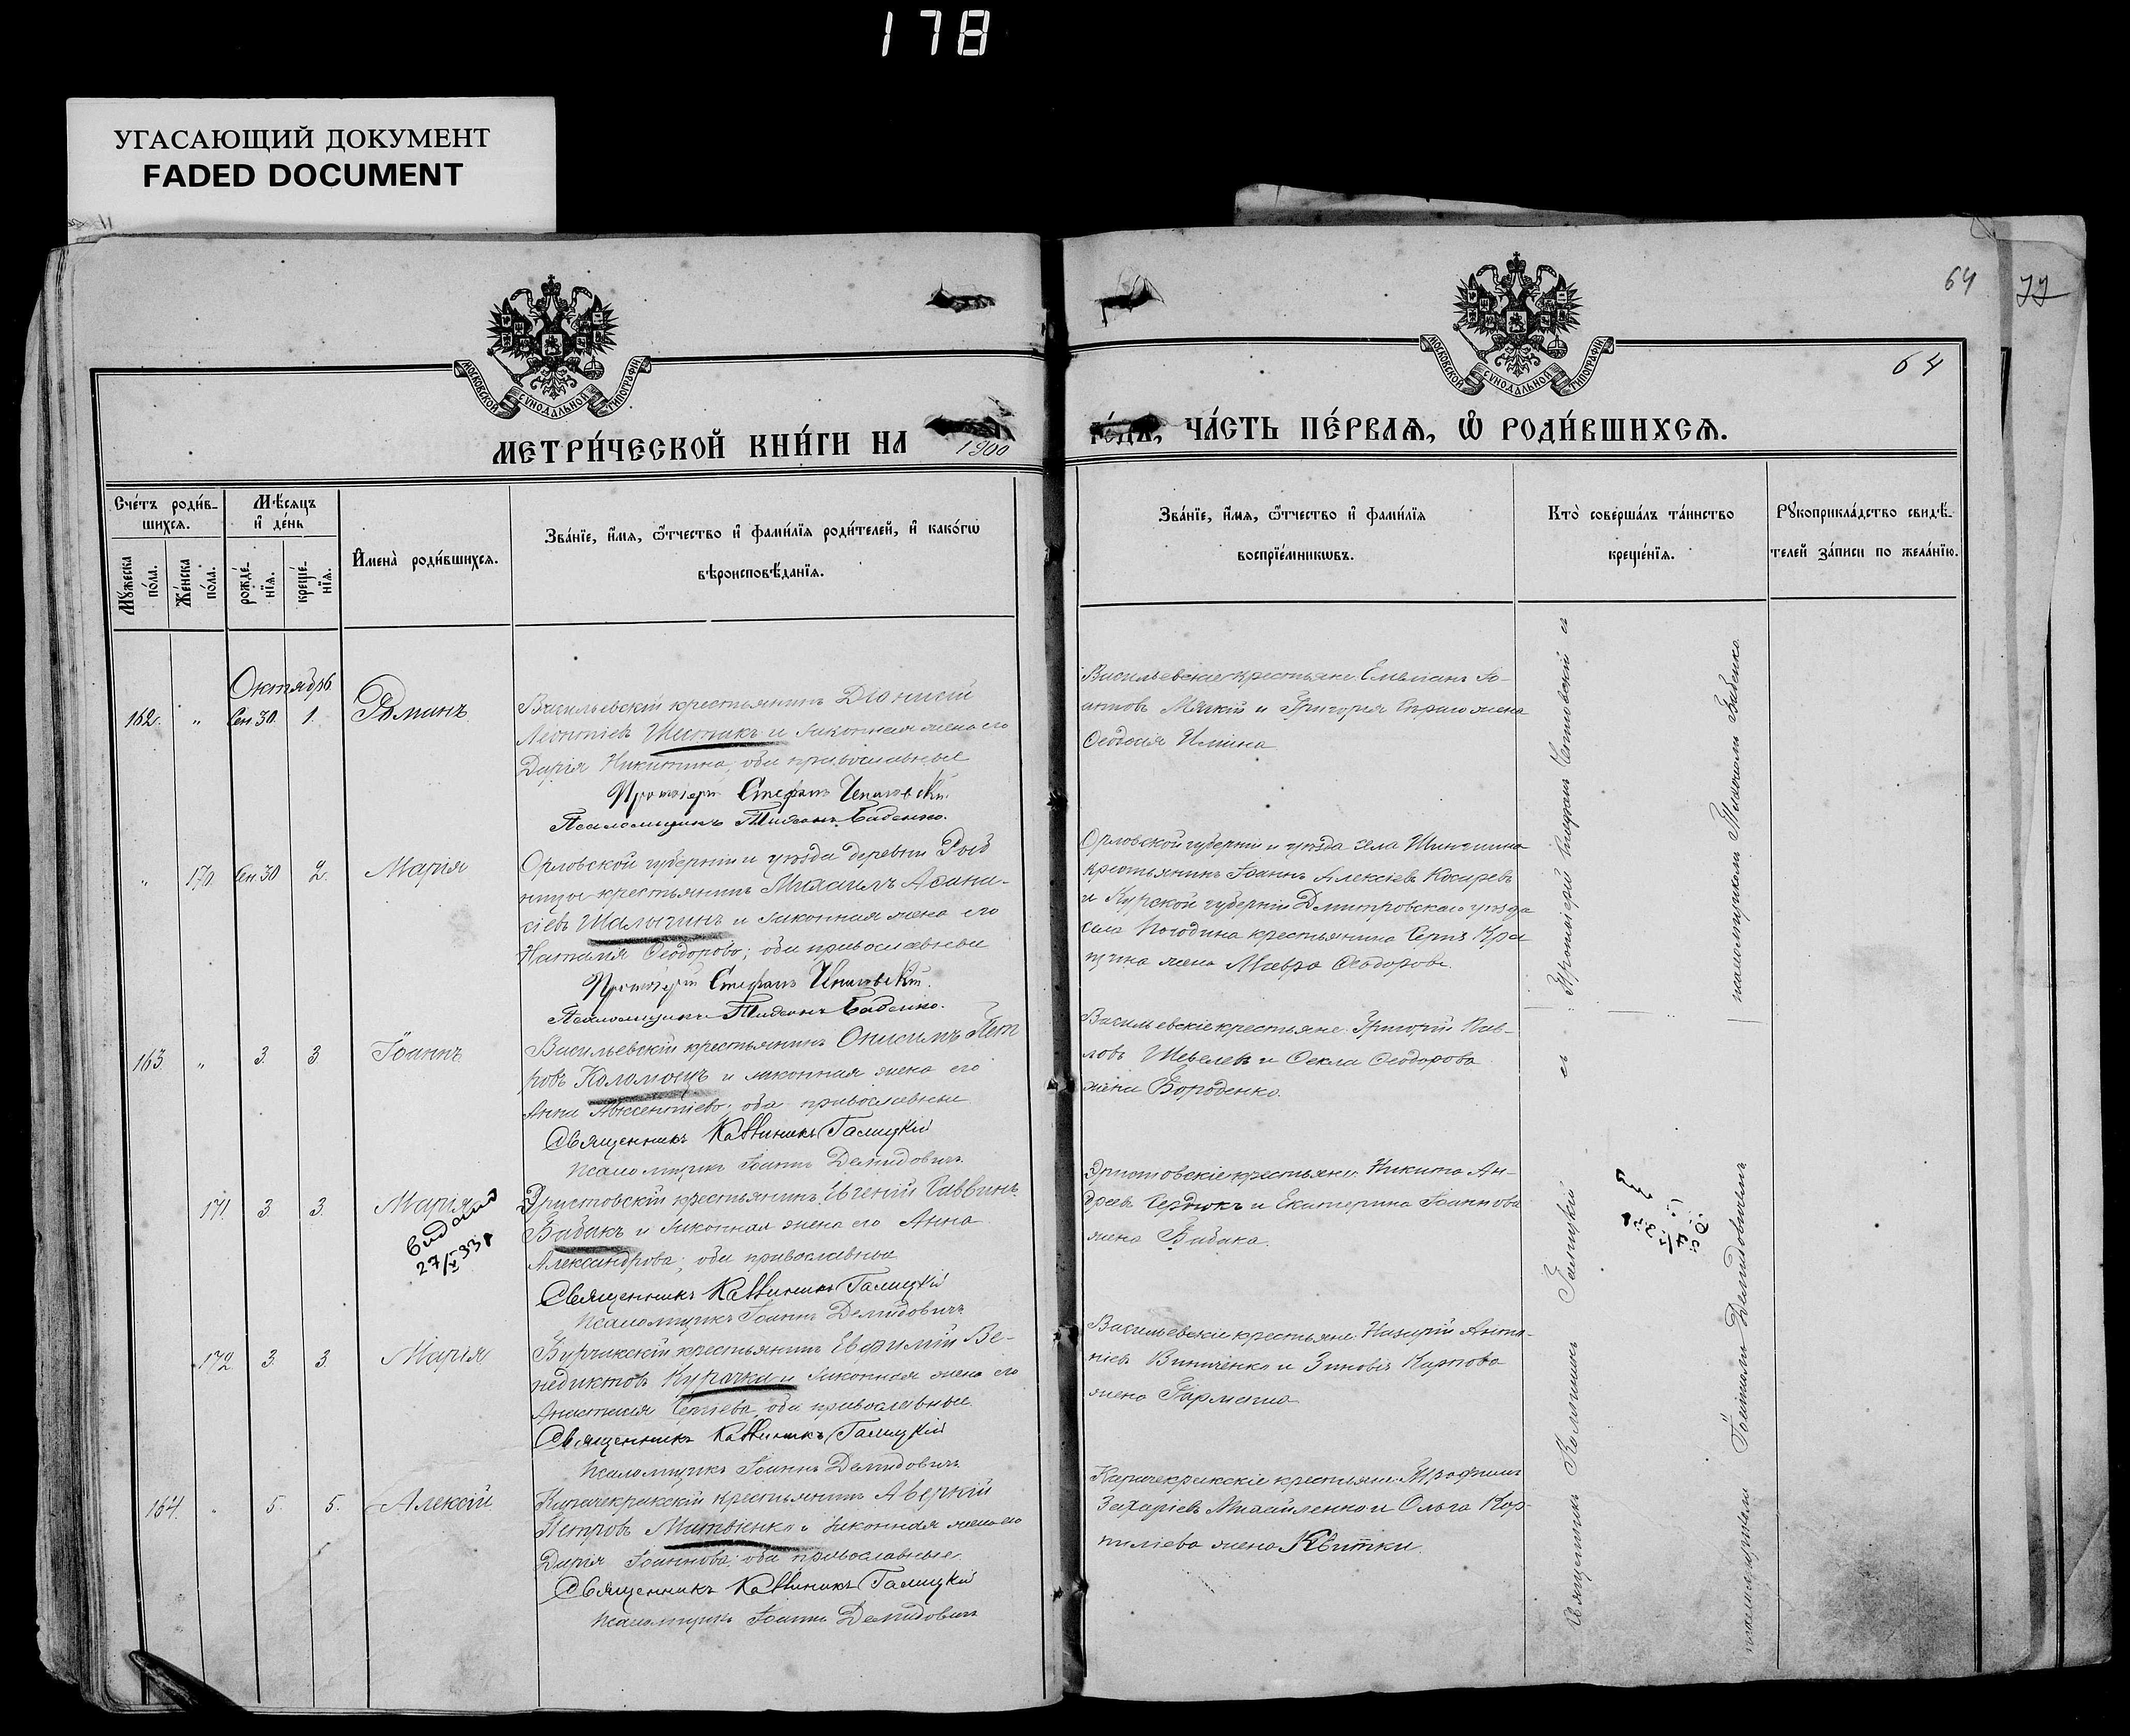 178
УГАСАЮЩИЙ ДОКУМЕНТ
FADED DOCUMENT
64
77
64
МОСКОВСКОЙ СѴНОДАЛЬНОЙ ТИПОГРАФІИ
МОСКОВСКОЙ СѴНОДАЛЬНОЙ ТИПОГРАФІИ
МЕТРИ́ЧЕСКОЙ КНИ́ГИ НА 1900
ЧА́СТЬ ПЕ́РВАѦ, Ѽ РОДИ́ВШИХСѦ.
Сче́тъ роди́в-
шихсѧ.
Мꙋ́жеска по́ла.
Же́нска по́ла.
Мѣ́сѧцъ
и҆ де́нь
рожде́-
нїѧ.
креще́-
нїѧ.
И҆мена̀ роди́вшихсѧ.
Зва́нїе, и҆́мѧ, ѻ҆́тчество и҆ фами́лїѧ роди́телей, и҆ како́гѡ
вѣроисповѣ́данїѧ.
Зва́нїе, и҆́мѧ, ѻ҆́тчество и҆ фами́лїѧ
воспрїе́мникѡвъ.
Кто̀ соверша́лъ та́инство
креще́нїѧ.
Рꙋкоприкла́дство свидѣ́-
телей за́писи по жела́нїю.
Октябрь
162. " Сен 30. 1. Романъ
Васильевскій крестьянинъ Діонисій
Леонтіевъ и законная жена его
Дарія Никитина, оба православные
Протоіерей Стефанъ
Псаломщикъ Тимѳонъ Бабенко.
Васильевскіе крестьяне: Емельянъ Іо-
анновъ Мягкій и Григорія жена
Ѳеодосія
" 170. Сен 30 2. Марія
Орловской губерніи и уѣзда деревни Рыб
ницы крестьянинъ Михаилъ Аѳана-
сіевъ Шалыгинъ и законная жена его
Наталія Ѳеодорова; оба православные
Протоіерей Стефанъ
Псаломщикъ Тимѳонъ Бабенко.
Орловской губерніи и уѣзда села
крестьянинъ Іоаннъ Алексіевъ Косыревъ
и Курской губерніи Дмитровскаго уѣзда
села Погодина крестьянина
жена Мавра Ѳеодорова.
163 " 3. 3 Іоаннъ
Васильевскій крестьянинъ Онисимъ Пет
ровъ Коломоецъ и законная жена его
Анна Авксентіева, оба православные
Священникъ Каллиникъ Галицкій
Псаломщикъ Іоаннъ Демидовичъ
Васильевскіе крестьяне: Григорій Пав-
ловъ Шевелевъ и Ѳекла Ѳеодорова
жена Бороденко.
171. 3. 3. Марія
Видано
27/X 33р
Эристовскій крестьянинъ Евгеній Саввинъ
Бабакъ и законная жена его Анна
Александрова; оба православные
Священникъ Каллиникъ Галицкій
Псаломщикъ Іоаннъ Демидовичъ
Эристовскіе крестьяне: Никита Ан-
дреевъ Сердюкъ и Екатерина Іоаннова
жена Бабака.
172. 3. 3. Марія
Бурчакскій крестьянинъ Евфимій Ве-
недиктовъ Курачка и законная жена его
Анастасія Сергіева, оба православные.
Священникъ Каллиникъ Галицкій
Псаломщикъ Іоаннъ Демидовичъ
Васильевскіе крестьяне: Назарій Анто-
ніевъ Виниченко и Зиновія Карпова
жена Гармаша
164. " 5. 5. Алексій
Карачекракскій крестьянинъ Аверкій
Петровъ Матвіенко и законная жена его
Дарія Іоаннова; оба православные.
Священникъ Каллиникъ Галицкій
Псаломщикъ Іоаннъ Демидовичъ
Карачекракскіе крестьяне: Трофимъ
Захаріевъ Михайленко и Ольга Кор-
нилієва жена Квитки.
Протоіерей Стефанъ съ
псаломщикомъ Бабенко
Священникъ Каллиникъ Галицкій съ
псаломщикомъ Іоанномъ Демидовичемъ